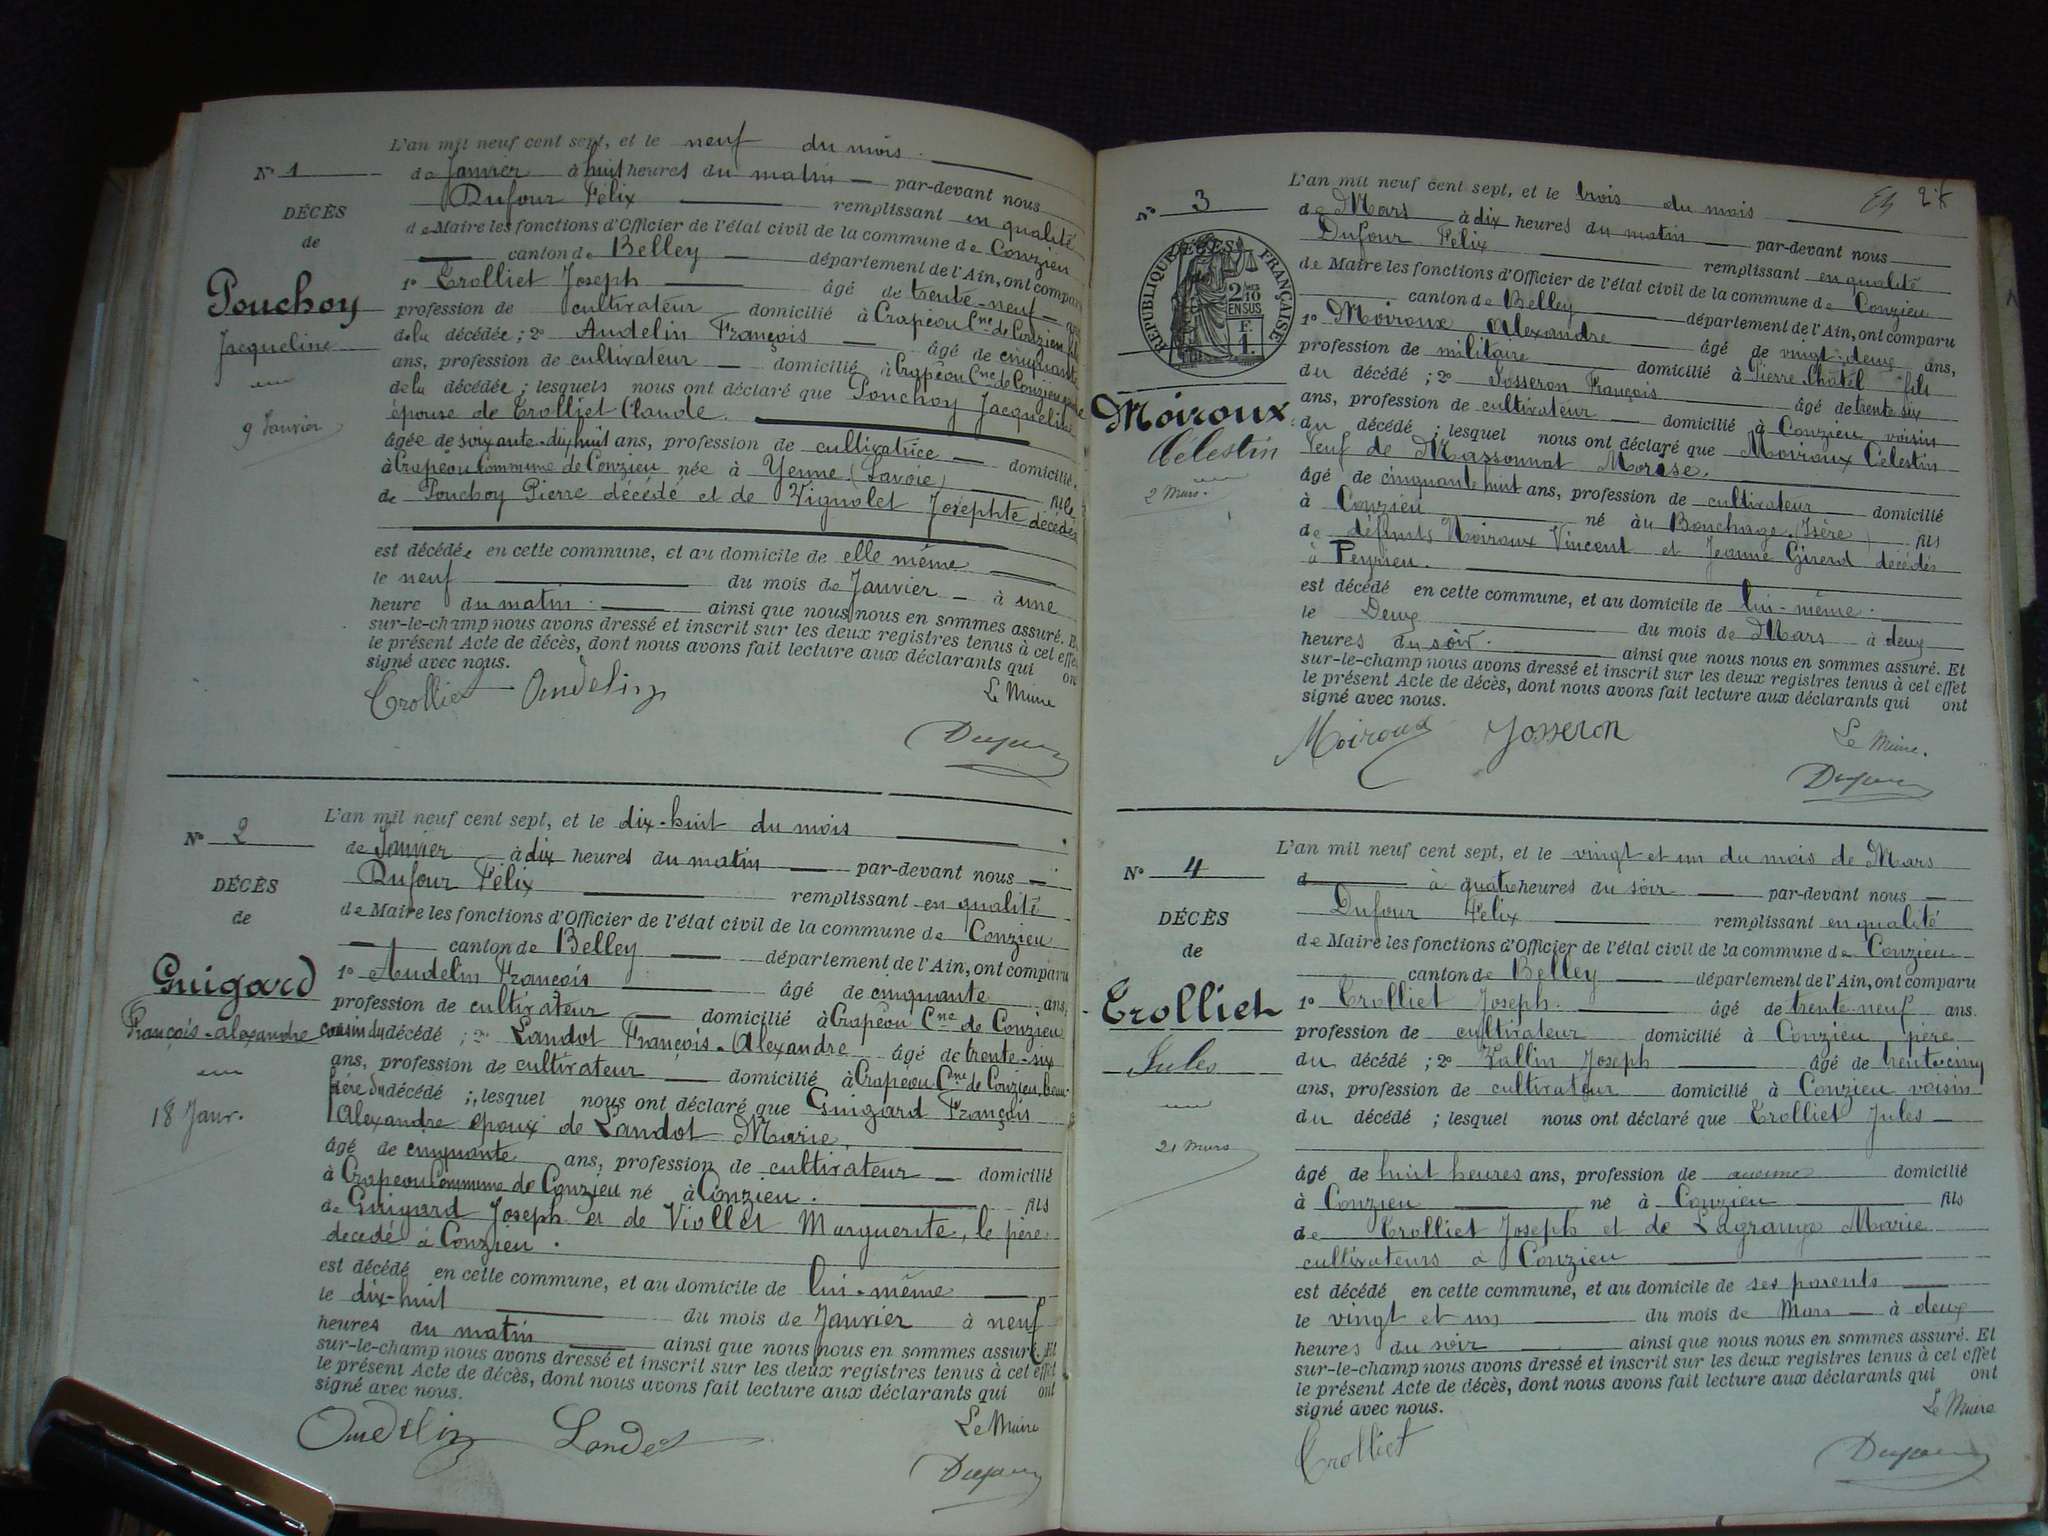 L'an mil neuf cent sept, et le neuf du mois
N° 1
de Janvier à huit heures du matin par-devant nous
DÉCÈS
Dufour Félix remplissant en qualité
de
de Maire les fonctions d'Officier de l'état civil de la commune de Conzieu
canton de Belley département de l'Ain, ont comparu
Pouchoy
Jacqueline
9 Janvier
1° Trolliet Joseph âgé de trente-neuf
profession de cultivateur domicilié à Crapéou Cne de Conzieu fils
de la décédée; 2° Audelin François âgé de cinquante
ans, profession de cultivateur domicilié à Crapéou Cne de Conzieu
de la décédée; lesquels nous ont déclaré que Pouchoy Jacqueline
épouse de Trolliet Claude
âgée de soixante-dix huit ans, profession de cultivatrice domiciliée
à Crapéou Commune de Conzieu née à Yenne (Savoie) fille
de Pouchoy Pierre décédé et de Vignolet Josephte décédés
est décédée en cette commune, et au domicile de elle même
le neuf du mois de Janvier à une
heure du matin ainsi que nous nous en sommes assuré. Et
sur-le-champ nous avons dressé et inscrit sur les deux registres tenus à cet effet
le présent Acte de décès, dont nous avons fait lecture aux déclarants qui ont
signé avec nous.
Trolliet Audelin Le Maire
Dufour
L'an mil neuf cent sept, et le dix-huit du mois
N° 2
de Janvier à dix heures du matin par-devant nous
DÉCÈS
Dufour Félix remplissant en qualité
de
de Maire les fonctions d'Officier de l'état civil de la commune de Conzieu
canton de Belley département de l'Ain, ont comparu
Guigard
François-Alexandre
18 Janv.
1° Audelin François âgé de cinquante ans,
profession de cultivateur domicilié à Crapéou Cne de Conzieu
cousin du décédé; 2° Landot François-Alexandre âgé de trente-six
ans, profession de cultivateur domicilié à Crapéou Cne de Conzieu, beau-
frère du décédé; lesquel nous ont déclaré que Guigard François
Alexandre époux de Landot Marie,
âgé de cinquante ans, profession de cultivateur domicilié
à Crapeou Commune de Conzieu né à Conzieu. fils
de Guigard Joseph et de Viollet Marguerite, le père
décédé à Conzieu.
est décédé en cette commune, et au domicile de lui-même
le dix-huit du mois de Janvier à neuf
heures du matin ainsi que nous nous en sommes assuré. Et
sur-le-champ nous avons dressé et inscrit sur les deux registres tenus à cet effet
le présent Acte de décès, dont nous avons fait lecture aux déclarants qui ont
signé avec nous.
Audelin Landot Le Maire
Dufour
L'an mil neuf cent sept, et le trois du mois
N° 3
RÉPUBLIQUE FRANÇAISE
2/10 EN SUS
F. 1.
de Mars à dix heures du matin par-devant nous
Dufour Felix remplissant en qualité
de Maire les fonctions d'Officier de l'état civil de la commune de Conzieu
canton de Belley département de l'Ain, ont comparu
Moiroux
Célestin
2 Mars.
1° Moiroux Alexandre âgé de vingt-deux ans,
profession de militaire domicilié à Pierre Châtel fils
du décédé; 2° Josseron François âgé de trente six
ans, profession de cultivateur domicilié à Conzieu voisin
du décédé; lesquel nous ont déclaré que Moiroux Célestin
veuf de Massonnat
âgé de cinquante huit ans, profession de cultivateur domicilié
à Conzieu né au Bouchage (Isère) fils
de défunts Moiroux Vincent et Jeanne Girerd décédés
à Peyrieu.
est décédé en cette commune, et au domicile de lui-même.
le Deux du mois de Mars à deux
heures du soir. ainsi que nous nous en sommes assuré. Et
sur-le-champ nous avons dressé et inscrit sur les deux registres tenus à cet effet
le présent Acte de décès, dont nous avons fait lecture aux déclarants qui ont
signé avec nous.
Moiroux Josseron Le Maire.
Dufour
L'an mil neuf cent sept, et le vingt et un du mois de Mars
N° 4
d à quatre heures du soir par-devant nous
DÉCÈS
Dufour Félix remplissant en qualité
de
de Maire les fonctions d'Officier de l'état civil de la commune de Conzieu
canton de Belley département de l'Ain, ont comparu
Trolliet
Jules
21 Mars
1° Trolliet Joseph. âgé de trente-neuf ans.
profession de cultivateur domicilié à Conzieu père
du décédé; 2° Vallin Joseph âgé de trente-cinq
ans, profession de cultivateur domicilié à Conzieu voisin
du décédé; lesquel nous ont déclaré que Trolliet Jules
âgé de huit heures ans, profession de aucune domicilié
à Conzieu né à Conzieu fils
de Trolliet Joseph et de Lagrange Marie
cultivateurs à Conzieu
est décédé en cette commune, et au domicile de ses parents
le vingt et un du mois de Mars à deux
heures du soir ainsi que nous nous en sommes assuré. Et
sur-le-champ nous avons dressé et inscrit sur les deux registres tenus à cet effet
le présent Acte de décès, dont nous avons fait lecture aux déclarants qui ont
signé avec nous.
Trolliet Le Maire
Dufour